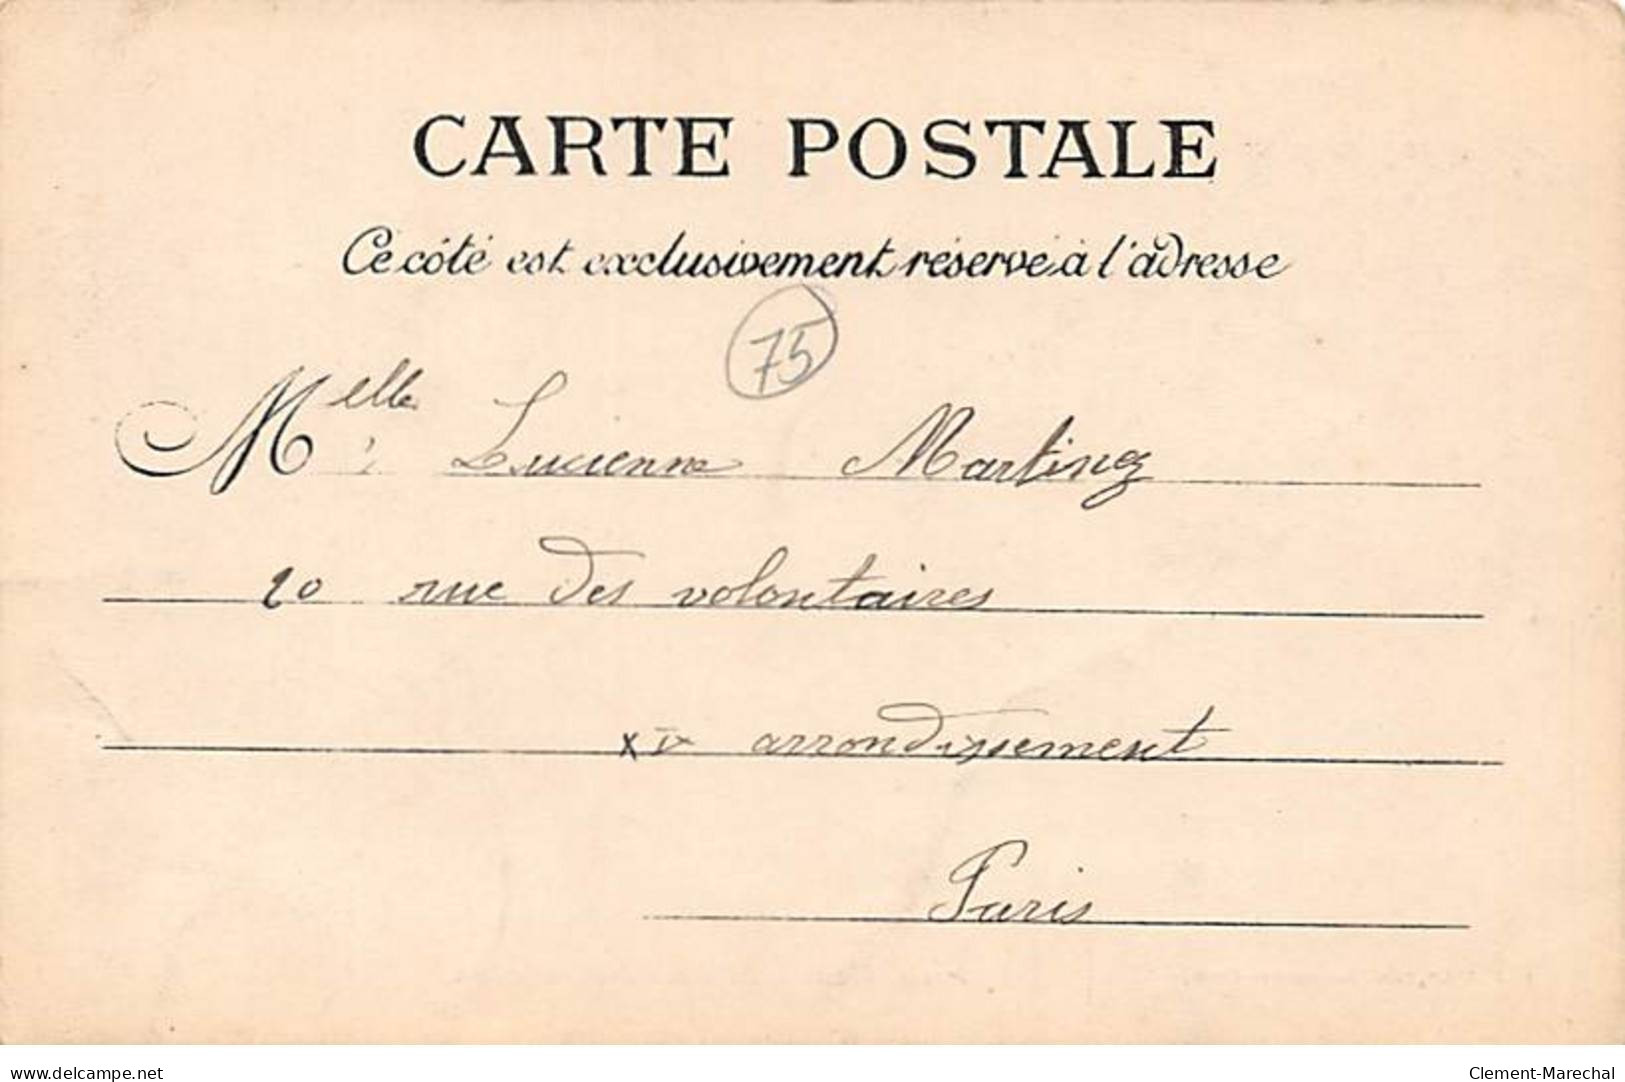 CARTE POSTALE
Ce côté est exclusivement réservé à l'adresse
75
Melle Lucienne Martinez
20 rue des volontaires
XV arrondissement
Paris
delcampe.net
Clement-Marechal